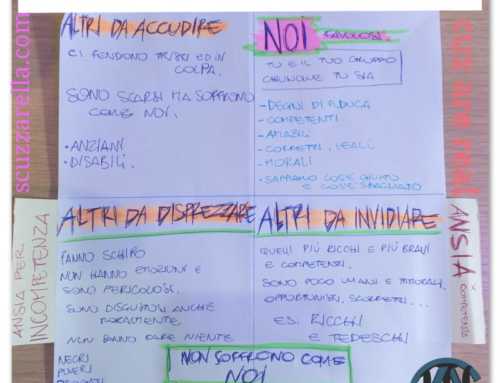 ALTRI DA ACCUDIRE
CI RENDONO TRISTI ED IN
COLPA.
SONO SCARSI MA SOFFRONO
COME NOI.
• ANZIANI
• DISABILI.
NOI FAVOLOSI.
TU E IL TUO GRUPPO
CHIUNQUE TU SIA
- DEGNI DI FIDUCIA
- COMPETENTI
- AMABILI
- CORRETTI, LEALI
- MORALI
- SAPPIAMO COS'È GIUSTO
E COS'È SBAGLIATO
ALTRI DA DISPREZZARE
FANNO SCHIFO
NON HANNO EMOZIONI E
SONO PERICOLOSI.
SONO DISGUSTOSI ANCHE
MORALMENTE
NON SANNO FARE NIENTE
NEGRI
POVERI
ALTRI DA INVIDIARE
QUELLI PIÙ RICCHI E PIÙ BRAVI
E COMPETENTI.
SONO POCO UMANI E IMMORALI,
OPPORTUNISTI, SCORRETTI...
ES. RICCHI
E TEDESCHI
NON SOFFRONO COME
NOI
ANSIA PER
INCOMPETENZA
ANSIA
scuzzarella.com